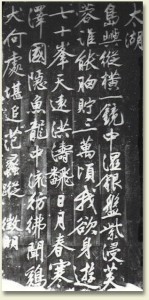 太湖
島嶼縱橫一鏡中濕銀盤紫浸芙
蓉誰能胸貯三萬頃我欲身遊
七十峯天遠洪濤飜日月春寒
澤國隱魚龍中流彷彿聞雞
犬何處堪追范蠡蹤 徵明